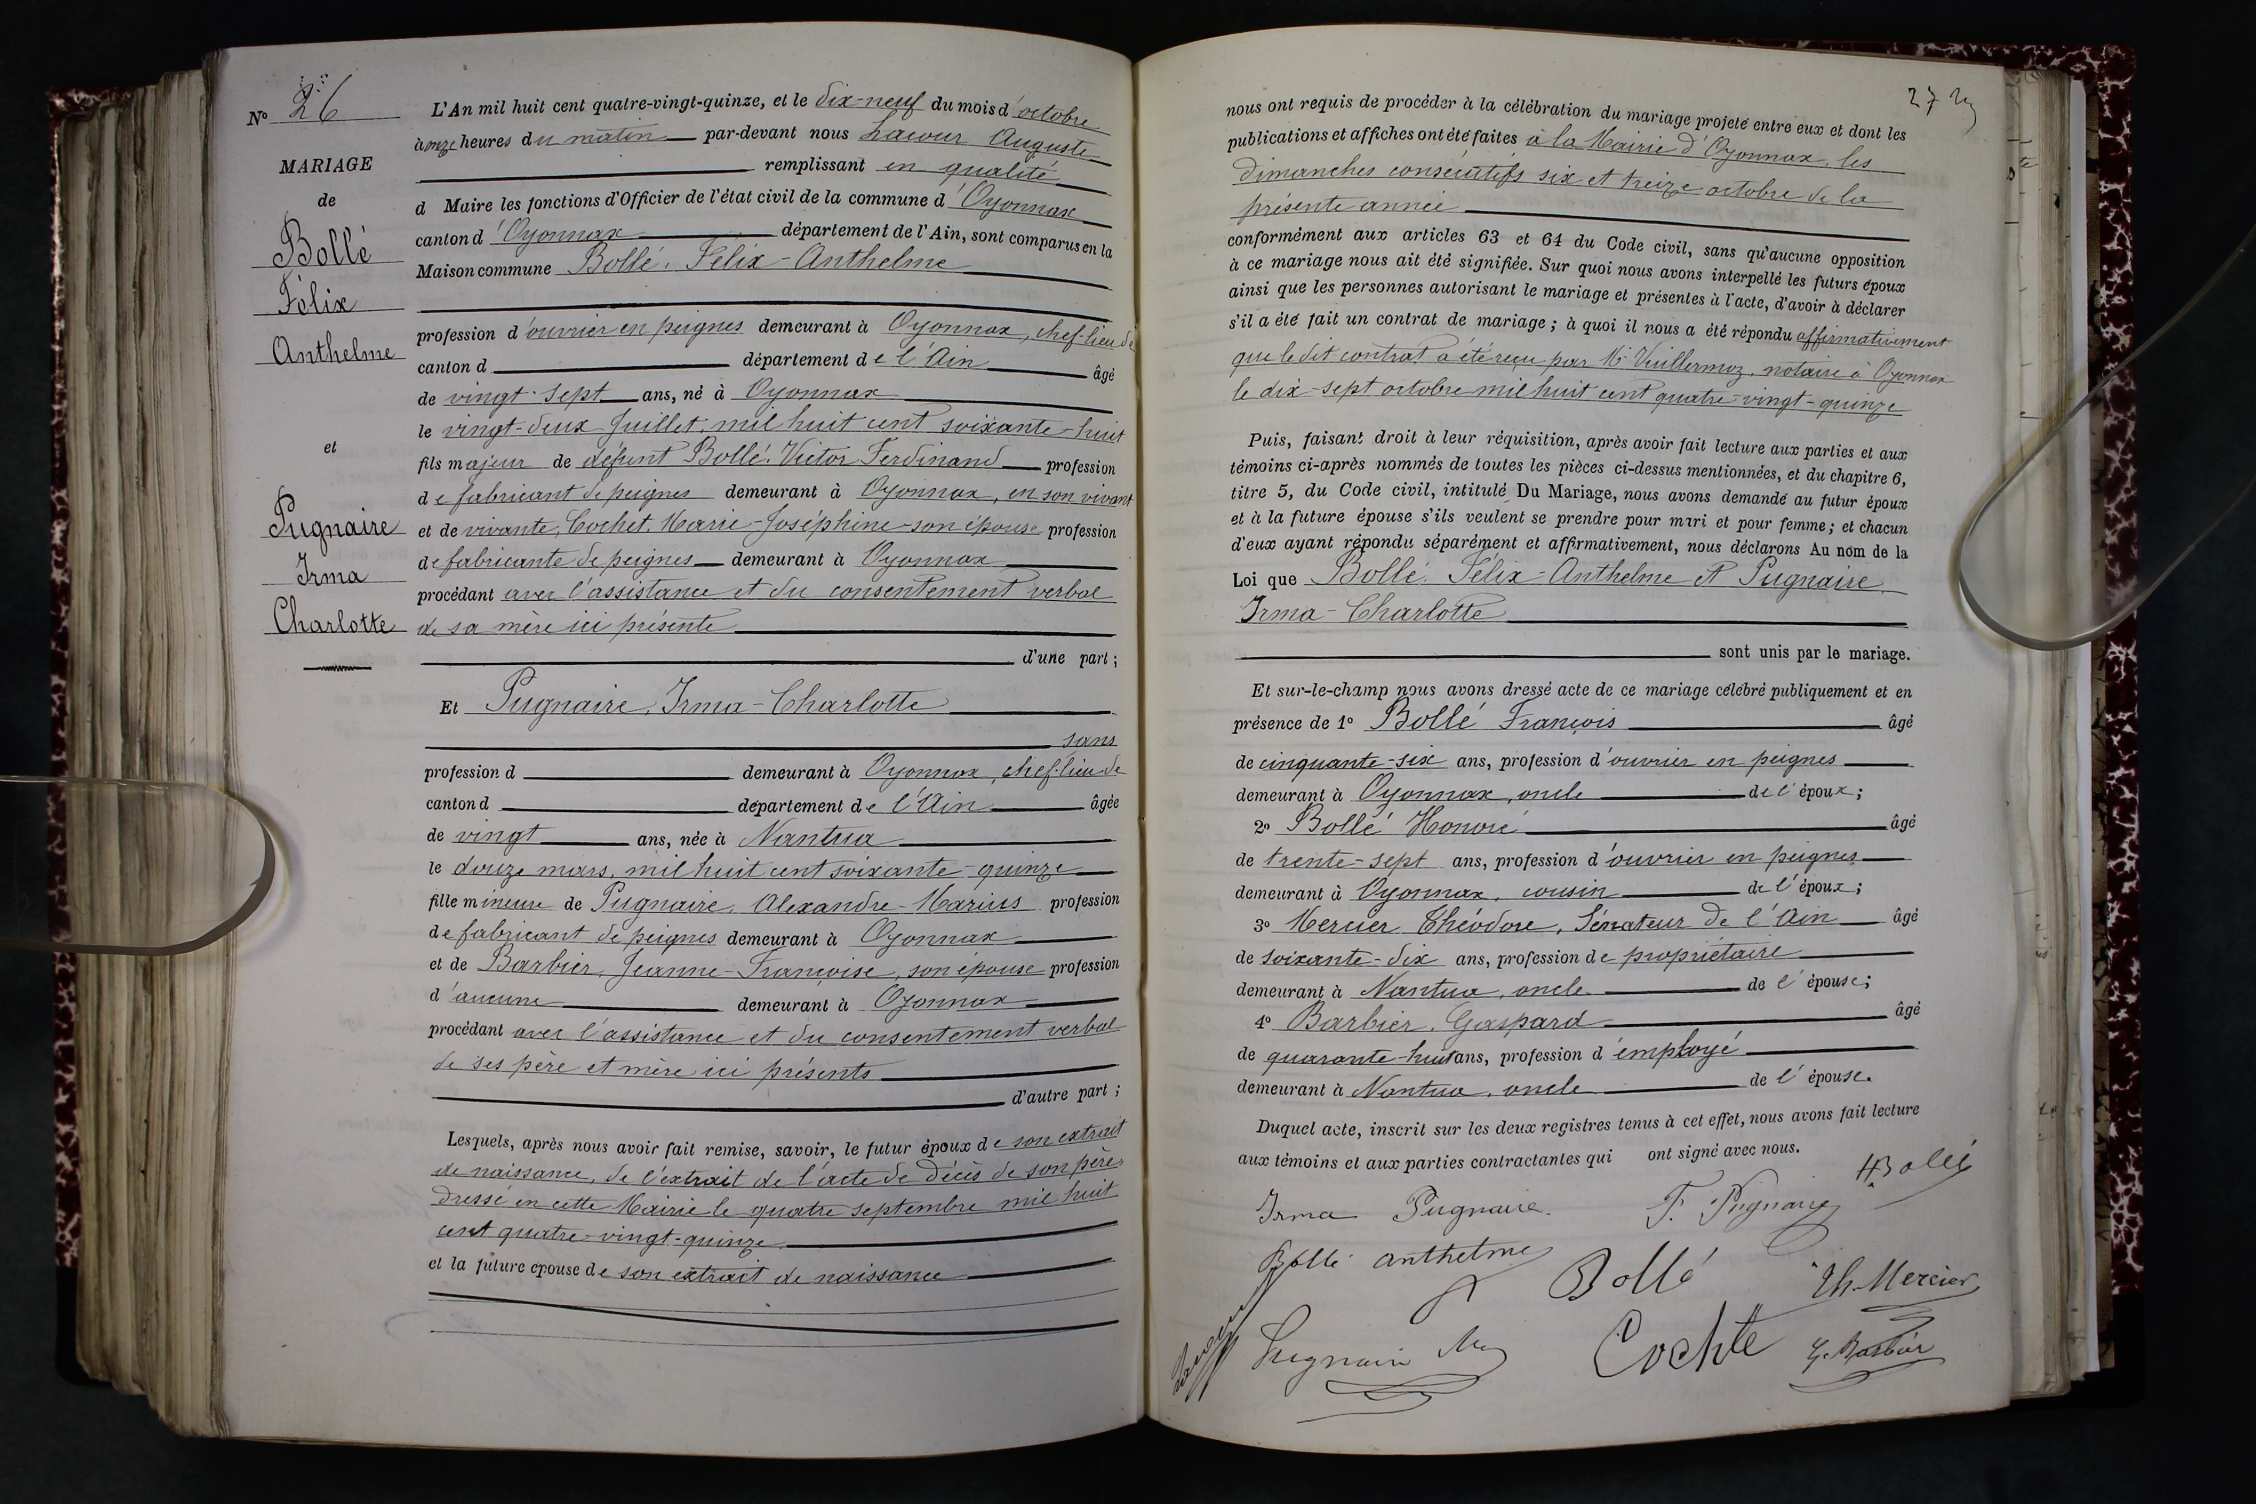 N° 26
MARIAGE
de
Bollé
Félix
Anthelme
et
Pugnaire
Irma
Charlotte
L'An mil huit cent quatre-vingt-quinze, et le dix-neuf du mois d'octobre
à onze heures du matin par-devant nous Lacour Auguste
remplissant en qualité
d Maire les fonctions d'Officier de l'état civil de la commune d'Oyonnax
canton d'Oyonnax département de l'Ain, sont comparus en la
Maison commune Bollé, Félix-Anthelme
profession d'ouvrier en peignes demeurant à Oyonnax, chef-lieu de
canton d département de l'Ain âgé
de vingt-sept ans, né à Oyonnax
le vingt-deux Juillet, mil huit cent soixante-huit
fils majeur de défunt Bollé, Victor Ferdinand profession
de fabricant de peignes demeurant à Oyonnax, en son vivant
et de vivante, Cochet, Marie-Joséphine son épouse profession
de fabricante de peignes demeurant à Oyonnax
procédant avec l'assistance et du consentement verbal
de sa mère ici présente
d'une part;
Et Pugnaire, Irma-Charlotte
sans
profession d demeurant à Oyonnax, chef-lieu de
canton d département de l'Ain âgée
de vingt ans, née à Nantua
le douze mars, mil huit cent soixante-quinze
fille mineure de Pugnaire, Alexandre-Marius profession
de fabricant de peignes demeurant à Oyonnax
et de Barbier, Jeanne-Françoise, son épouse profession
d'aucune demeurant à Oyonnax
procédant avec l'assistance et du consentement verbal
de ses père et mère ici présents
d'autre part;
Lesquels, après nous avoir fait remise, savoir, le futur époux de son extrait
de naissance, de l'extrait de l'acte de décès de son père,
dressé en cette Mairie le quatre septembre mil huit
cent quatre-vingt-quinze
et la future epouse de son extrait de naissance
27
nous ont requis de procéder à la célébration du mariage projeté entre eux et dont les
publications et affiches ont été faites à la Mairie d'Oyonnax, les
dimanches consécutifs six et treize octobre de la
présente année
conformément aux articles 63 et 64 du Code civil, sans qu'aucune opposition
à ce mariage nous ait été signifiée. Sur quoi nous avons interpellé les futurs époux
ainsi que les personnes autorisant le mariage et présentes à l'acte, d'avoir à déclarer
s'il a été fait un contrat de mariage; à quoi il nous a été répondu affirmativement
que le dit contrat a été reçu par Me Vuillermoz, notaire à Oyonnax
le dix-sept octobre mil huit cent quatre-vingt-quinze
Puis, faisant droit à leur réquisition, après avoir fait lecture aux parties et aux
témoins ci-après nommés de toutes les pièces ci-dessus mentionnées, et du chapitre 6,
titre 5, du Code civil, intitulé Du Mariage, nous avons demandé au futur époux
et à la future épouse s'ils veulent se prendre pour mari et pour femme; et chacun
d'eux ayant répondu séparément et affirmativement, nous déclarons Au nom de la
Loi que Bollé, Félix-Anthelme et Pugnaire,
Irma-Charlotte
sont unis par le mariage.
Et sur-le-champ nous avons dressé acte de ce mariage célébré publiquement et en
présence de 1° Bollé François âgé
de cinquante-six ans, profession d'ouvrier en peignes
demeurant à Oyonnax, oncle de l'époux;
2° Bollé Honoré âgé
de trente-sept ans, profession d'ouvrier en peignes
demeurant à Oyonnax, cousin de l'époux;
3° Mercier Théodore, Sénateur de l'Ain âgé
de soixante-dix ans, profession de propriétaire
demeurant à Nantua, oncle de l'épouse;
4° Barbier, Gaspard âgé
de quarante-huit ans, profession d'employé
demeurant à Nantua, oncle de l'épouse.
Duquel acte, inscrit sur les deux registres tenus à cet effet, nous avons fait lecture
aux témoins et aux parties contractantes qui ont signé avec nous.
H Bollé
Irma Pugnaire. F. Pugnaire
Bollé anthelme Bollé Th. Mercier
Lacour Pugnaire Cochte G. Barbier